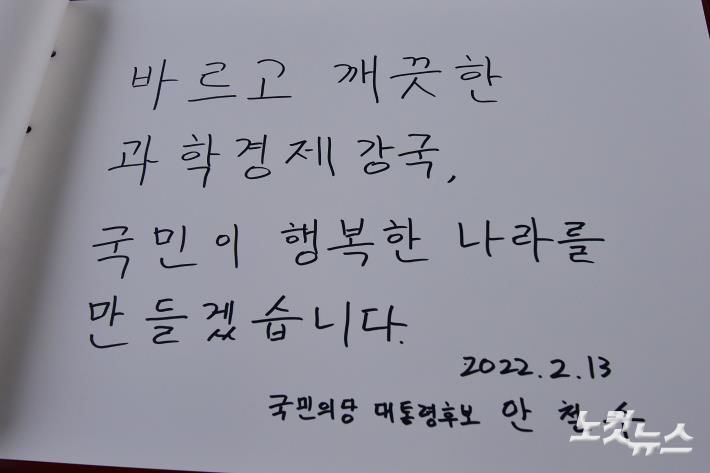 바르고 깨끗한
과학경제강국,
국민이 행복한 나라를
만들겠습니다.
2022.2.13
국민의당 대통령후보 안 철 수
노컷뉴스